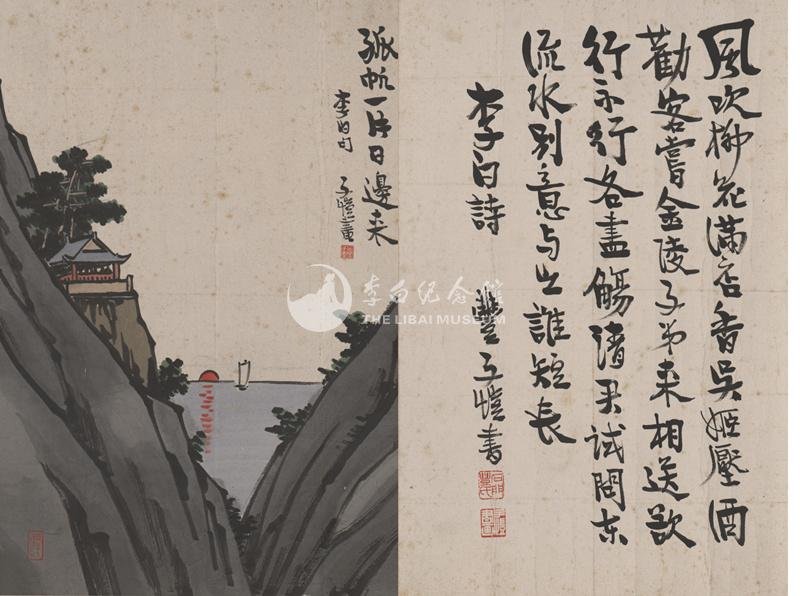 風吹柳花滿店香吳姬壓酒
勸客嘗金陵子弟来相送欲
行不行各盡觴請君试問东
流水别意与之誰短长
李白詩 豐子愷書
孤帆一片日邊来
李白句 子愷畫
李白纪念馆
THE LIBAI MUSEUM